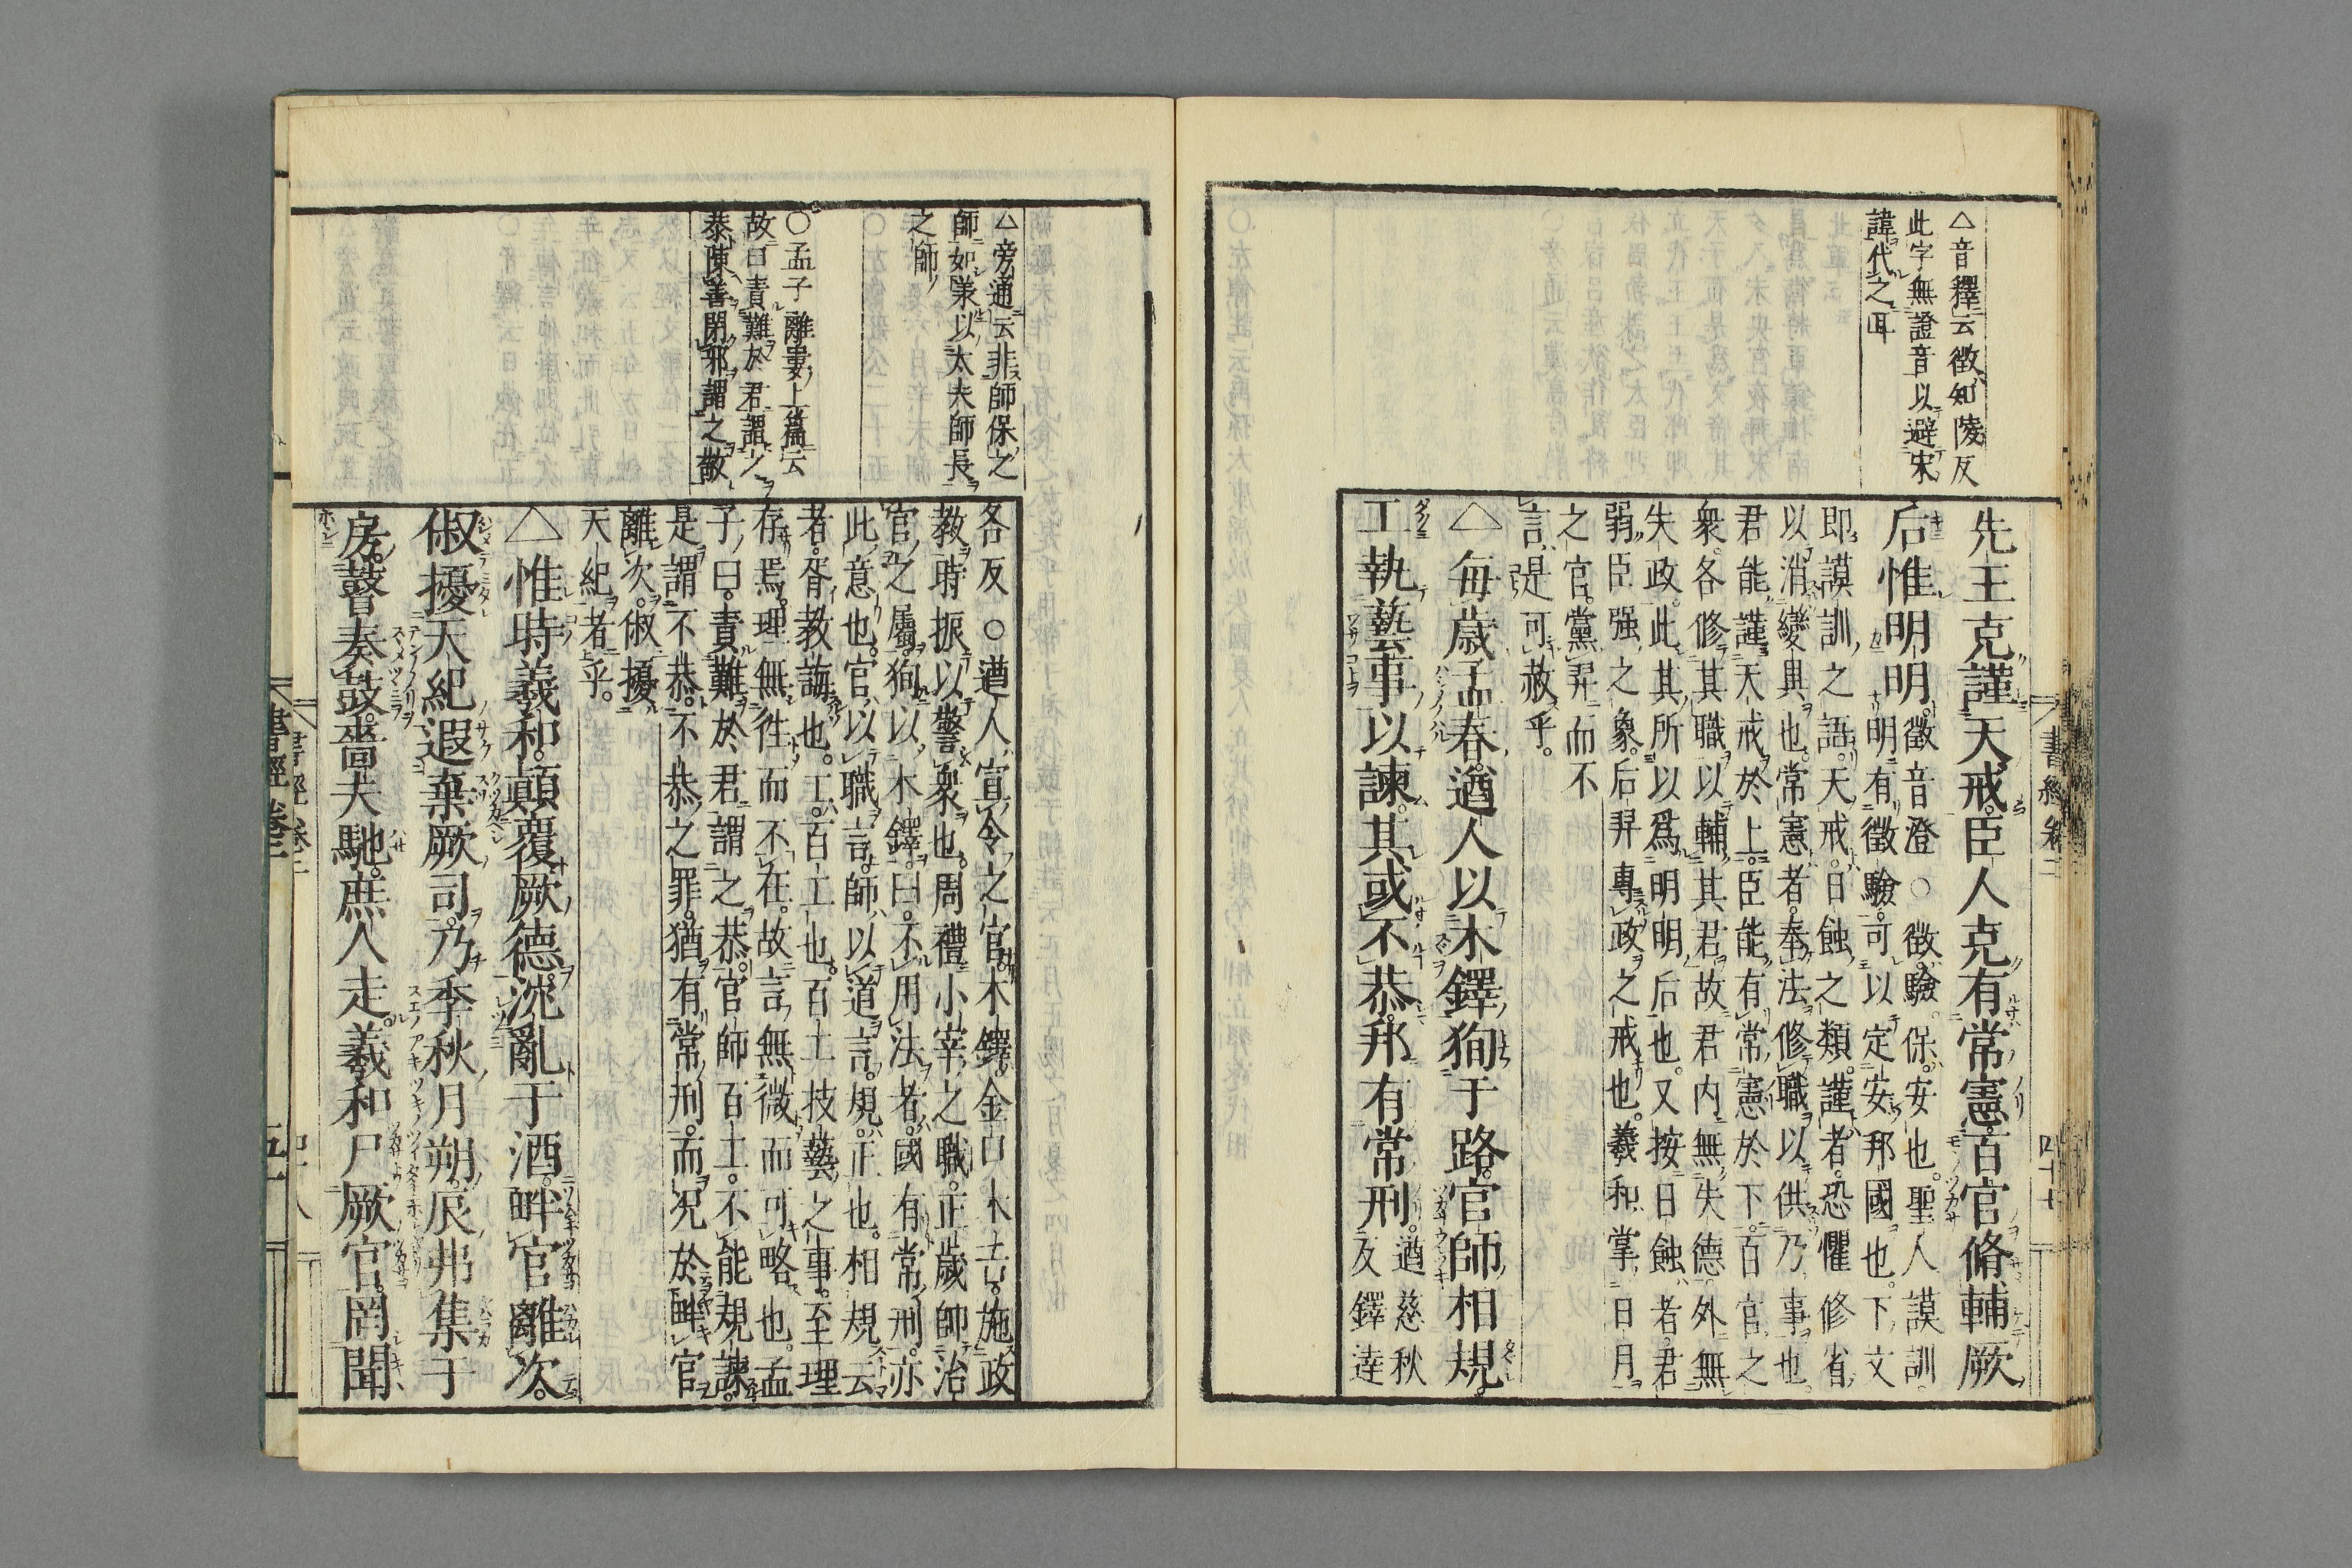 △音釋云徴知陵反
此字無證音以避宋
諱代之耳
先王克謹天戒臣人克有常憲百官脩輔厥
后惟明明
徵音澄○徴驗保安也聖人謨訓
明有徴驗可以定安邦國也下文
即謨訓之語天戒日蝕之類謹者恐懼修省
以消變異也常憲者奉法修職以供乃事也
君能謹天戒於上臣能有常憲於下百官之
衆各修其職以輔其君故君内無失德外無
失政此其所以爲明明后也又按日蝕者君
弱臣强之象后羿專政之戒也羲和掌日月
之官黨羿而不
言是可赦乎
△每歳孟春遒人以木鐸狥于路官師相規
工執藝事以諫其或不恭邦有常刑
遒慈秋
反鐸達
書經卷二
四十七
△旁通云非師保之
師如栗以太夫師長
之師
○孟子離婁上篇云
故曰責難於君謂之
恭陳善閉邪謂之敬
各反○遒人宣令之官木鐸金口木舌施政
教時振以警衆也周禮小宰之職正歲師治
官之屬狥以木鐸曰不用法者國有常刑亦
此意也官以職言師以道言規正也相規云
者胥教誨也工百工也百工技藝之事至理
存焉理無徃而不在故言無微而可略也孟
子曰責難於君謂之恭官師百工不能規諫
是謂不恭不恭之罪猶有常刑而况於畔官
離次俶擾
天紀者乎
△惟時羲和顚覆厥德沈亂于酒畔官離次
俶擾天紀遐棄厥司乃季秋月朔辰弗集于
房瞽奏鼓嗇夫馳庶人走羲和尸厥官罔聞
書經卷二